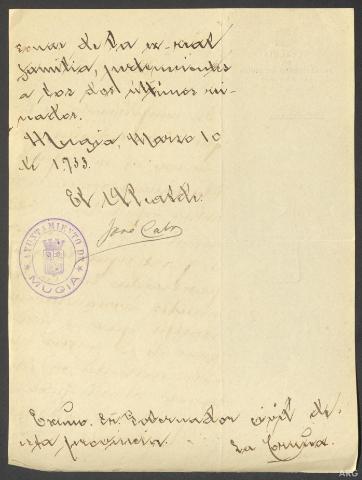 sonas de la ex-real
familia, pertenecientes
a los dos últimos rei-
nados.
Mugia, Marzo 10
de 1.933.
El Alcalde.
José
AYUNTAMIENTO DE
MUGIA
Excmo. Sr. Gobernador civil de
esta provincia.
La Coruña.
ARG